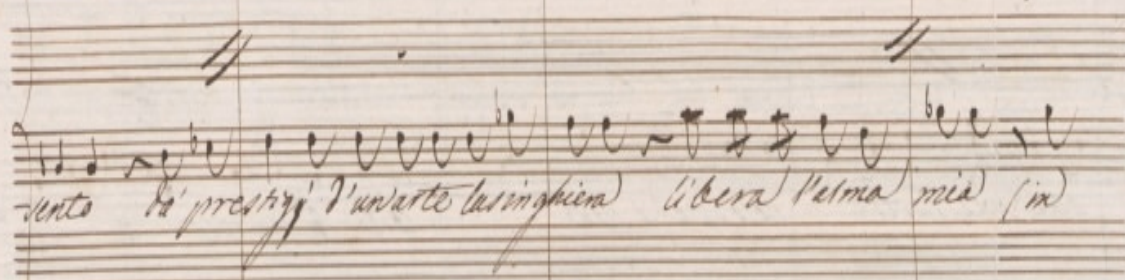 -sento da' prestigj d'un'arte lusinghiera libera l'alma mia (in